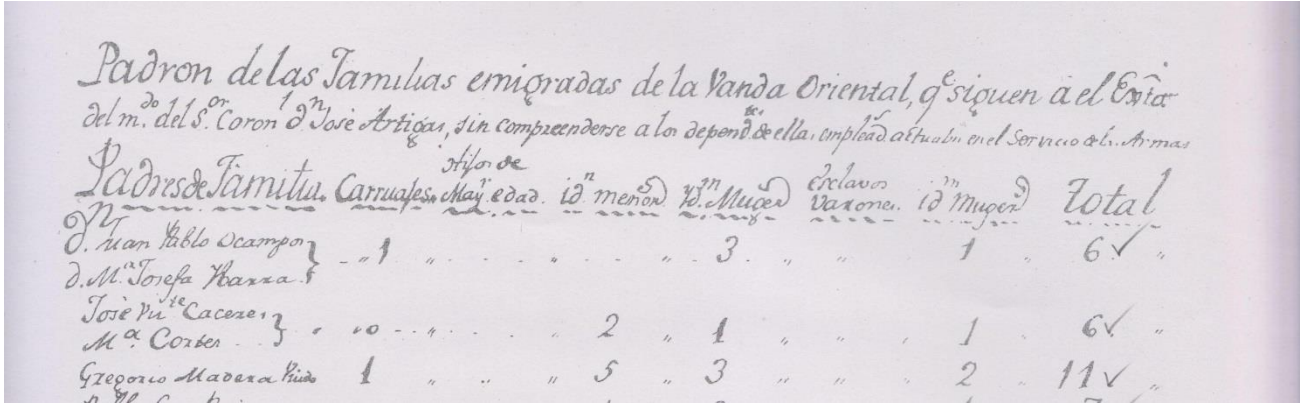 Padron de las Familias emigradas de la Vanda Oriental, qe siguen á el Exto
del mdo. del Sor. Coronl dn José Artigas, sin compreenderse a los dependtes de ella, emplead.s actualm. en el Servicio de ls. Armas
Padres de Familia. Carruajes. Hijos de Mayr. edad. idn menors Ydn. Mugers esclavos Varones. idn Mugers Total
dn. Juan Pablo Ocampo } 1 3 1 6 ✓
d. Ma. Josefa Ybarra
José Vite Caceres } 0 2 1 1 6 ✓
Ma. Cortes
Gregorio Madera Viudo 1 5 3 2 11 ✓